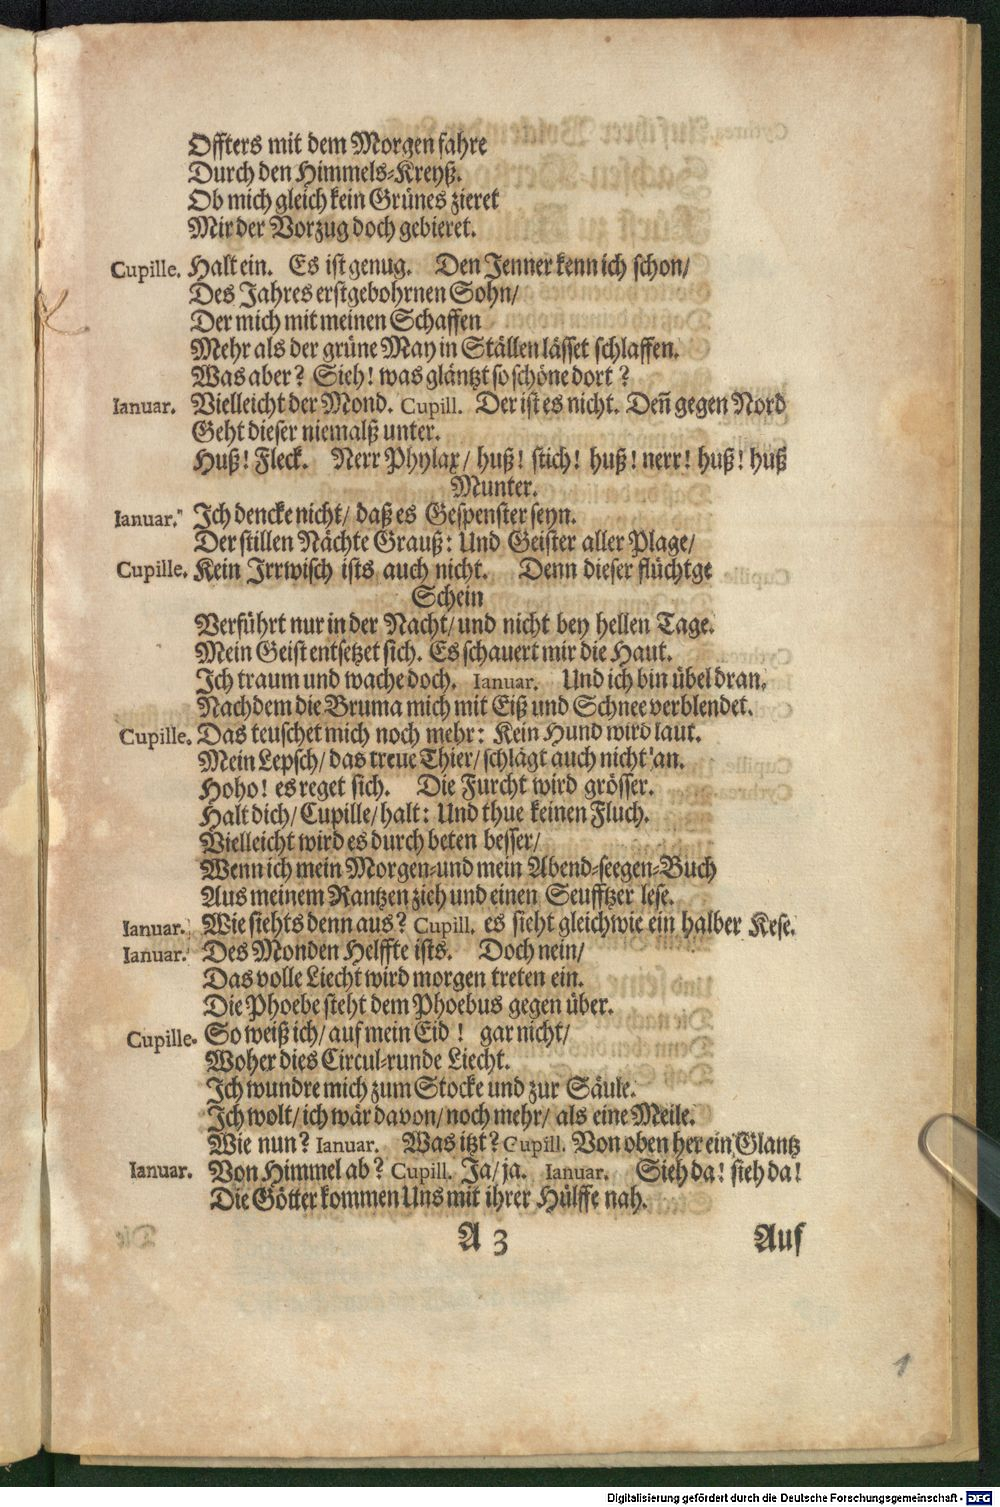 Offters mit dem Morgen fahre
Durch den Himmels-Kreyß.
Ob mich gleich kein Grünes zieret
Mir der Vorzug doch gebieret.
Cupille. Halt ein. Es ist genug. Den Jenner kenn ich schon/
Des Jahres erstgebohrnen Sohn/
Der mich mit meinen Schaffen
Mehr als der grüne May in Ställen lässet schlaffen.
Was aber? Sieh! was gläntzt so schöne dort?
Ianuar. Vielleicht der Mond. Cupill. Der ist es nicht. Deñ gegen Nord
Geht dieser niemalß unter.
Huß! Fleck. Nerr Phylax/ huß! stich! huß! nerr! huß! huß
Munter.
Ianuar. Ich dencke nicht/ daß es Gespenster seyn.
Der stillen Nächte Grauß: Und Geister aller Plage/
Cupille. Kein Irrwisch ists auch nicht. Denn dieser flüchtge
Schein
Verführt nur in der Nacht/ und nicht bey hellen Tage.
Mein Geist entsetzet sich. Es schauert mir die Haut.
Ich traum und wache doch. Ianuar. Und ich bin übel dran,
Nachdem die Bruma mich mit Eiß und Schnee verblendet.
Cupille. Das teuschet mich noch mehr: Kein Hund wird laut.
Mein Lepsch/ das treue Thier/ schlägt auch nicht an.
Hoho! es reget sich. Die Furcht wird grösser.
Halt dich/ Cupille/ halt: Und thue keinen Fluch.
Vielleicht wird es durch beten besser/
Wenn ich mein Morgen-und mein Abend-seegen-Buch
Aus meinem Rantzen zieh und einen Seufftzer lese.
Ianuar. Wie siehts denn aus? Cupill. es sieht gleich wie ein halber Kese.
Ianuar. Des Monden Helffte ists. Doch nein/
Das volle Liecht wird morgen treten ein.
Die Phoebe steht dem Phoebus gegen über.
Cupille. So weiß ich/ auf mein Eid! gar nicht/
Woher dies Circul-runde Liecht.
Ich wundre mich zum Stocke und zur Säule.
Ich wolt/ ich wär davon/ noch mehr/ als eine Meile.
Wie nun? Ianuar. Was itzt? Cupill. Von oben her ein Glantz
Ianuar. Von Himmel ab? Cupill. Ja/ ja. Ianuar. Sieh da! sieh da!
Die Götter kommen Uns mit ihrer Hülffe nah.
A 3 Auf
1
Digitalisierung gefördert durch die Deutsche Forschungsgemeinschaft - DFG